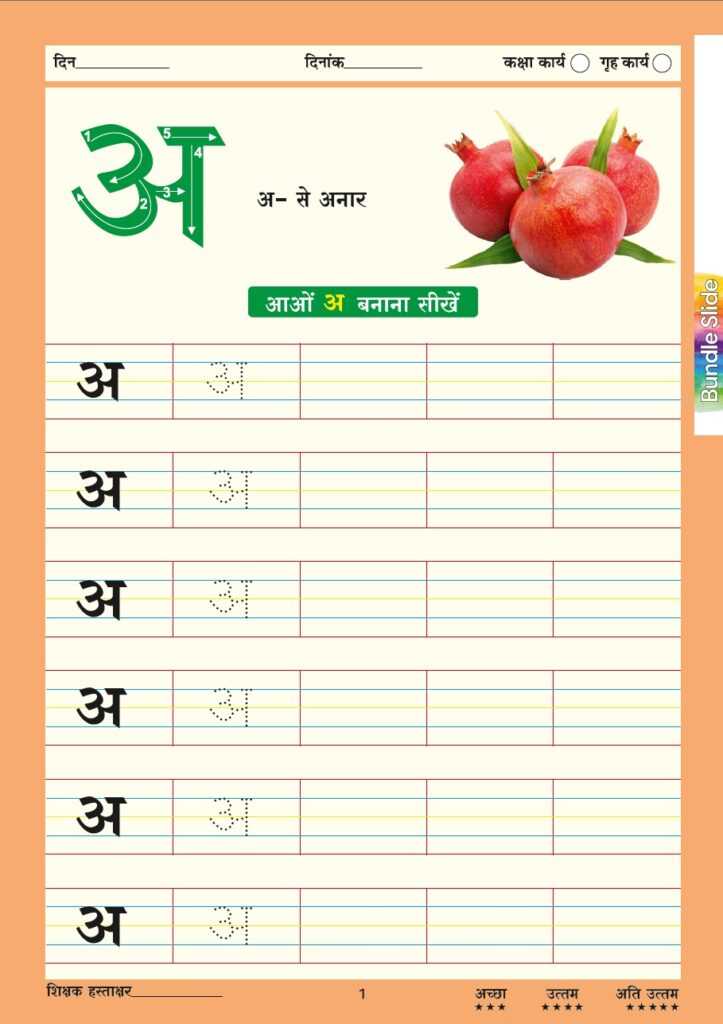 दिन__________ दिनांक__________ कक्षा कार्य गृह कार्य
1 5
4
3
2
अ
अ- से अनार
आओं अ बनाना सीखें
Bundle Slide
अ अ
अ अ
अ अ
अ अ
अ अ
अ अ
शिक्षक हस्ताक्षर__________ 1 अच्छा उत्तम अति उत्तम
★★★ ★★★★ ★★★★★